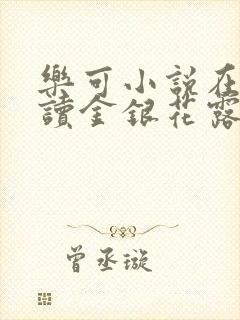 樂可小說在
讀金銀花露
曾丞璇